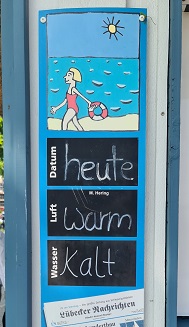 Datum heute
M. Hering
Luft warm
Wasser Kalt
Lübecker Nachrichten